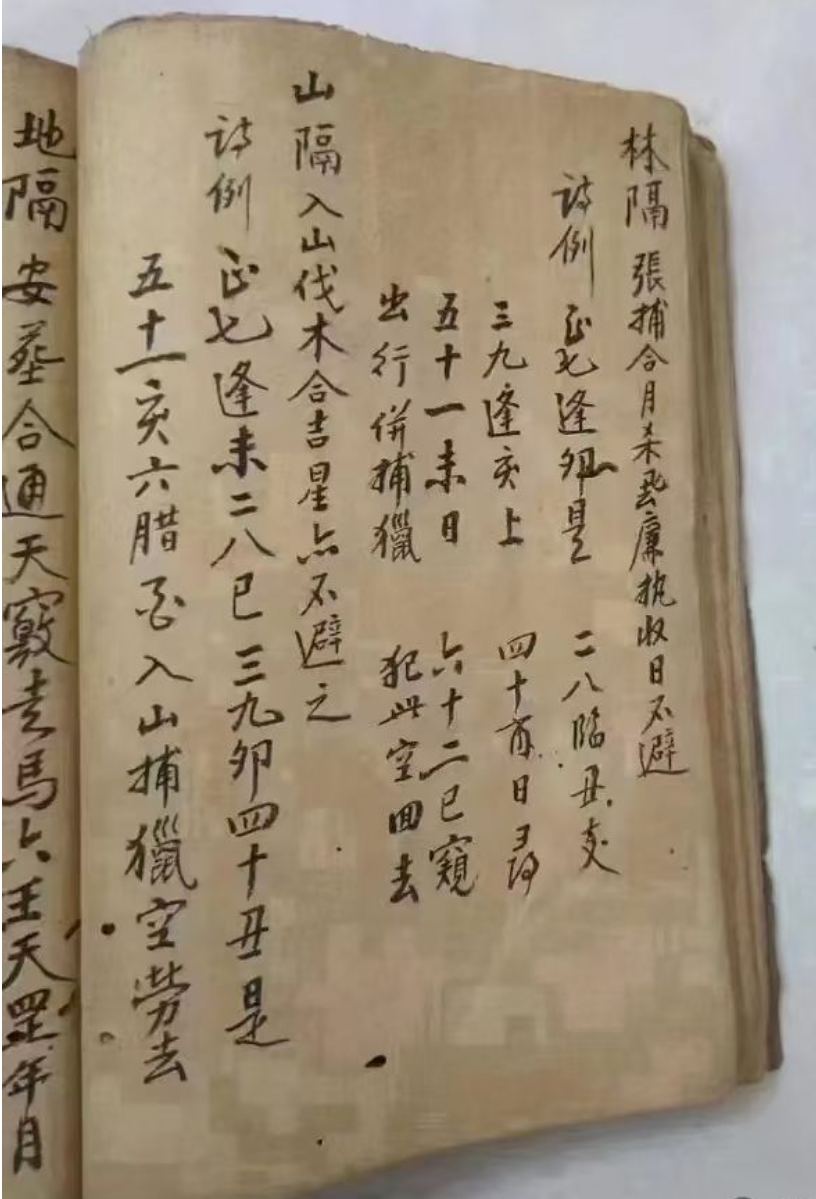 林隔 張捕合月杀飛廉执收日不避
詩例 正七逢卯是 二八臨丑支
三九逢亥上 四十酉日尋
五十一未日 六十二巳窺
出行併捕獵 犯此空回去
山隔 入山伐木合吉星亦不避之
詩例 正七逢未二八巳三九卯四十丑是
五十一亥六腊酉入山捕獵空勞去
地隔 安葬合通天竅走馬六壬天罡年月